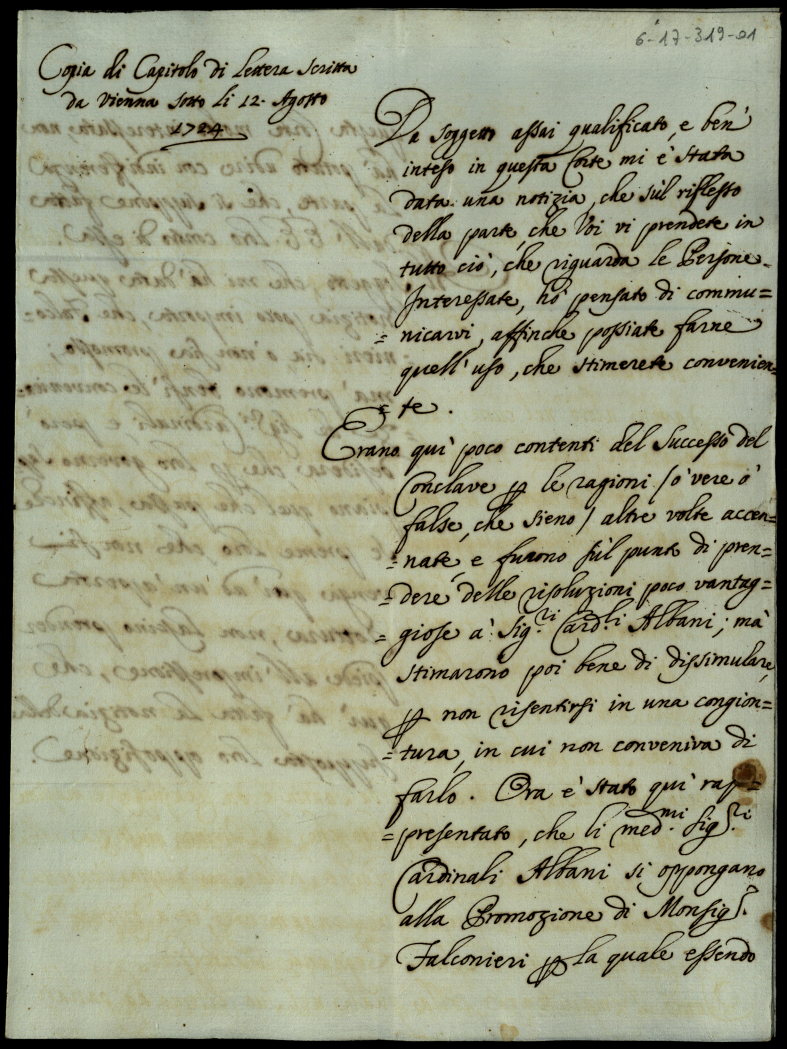 6-17-319-01
Copia di Capitolo di Lettera scritta
da Vienna sotto li 12. Agosto
1724
Da soggetto assai qualificato, e ben'
inteso in questa Corte mi è stata
data una notizia, che sul riflesso
della parte, che Voi vi prendete in
tutto ciò, che riguarda le Persone
Interessate, hò pensato di commu=
=nicarvi, affinche possiate farne
quell'uso, che stimerete convenien=
=te.
Erano quì poco contenti del Successo del
Conclave p le ragioni / ò vere ò
false, che sieno / altre volte accen=
=nate, e furono sùl punto di pren=
=dere delle risoluzioni poco vantag=
=giose à Sig.ri Card.li Albani; mà
stimarono poi bene di dissimulare,
p non risentirsi in una congion=
=tura, in cui non conveniva di
farlo. Ora è stato quì rap=
=presentato, che li med.mi Sig.ri
Cardinali Albani si oppongano
alla Promozione di Monsig.r
Falconieri p la quale essendo